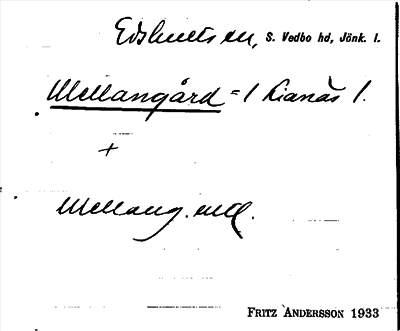 Edshults sn, S. Vedbo hd, Jönk. l.
Mellangård = 1 Lianäs 1.
+
Mellang. mll.
FRITZ ANDERSSON 1933